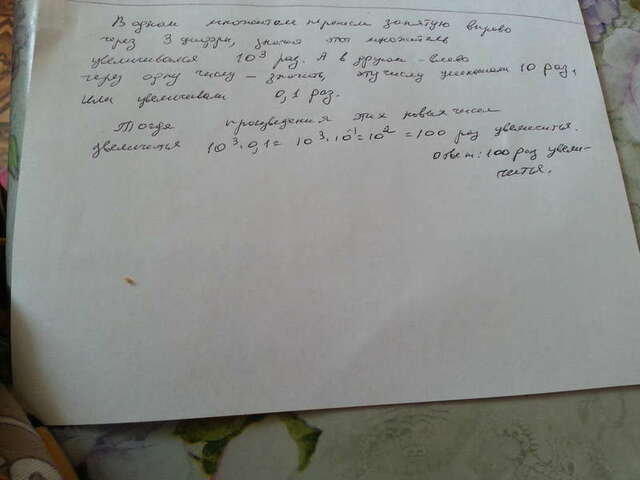 В одном множителе перенесли запятую вправо
через 3 цифры, значит этот множитель
увеличивался 10³ раз. А в другом - влево
через одну числу - значить, эту числу уменьшали 10 раз,
или увеличивали 0,1 раз.
Тогда произведения этих новых чисел
увеличится 10³·0,1 = 10³·10⁻¹ = 10² = 100 раз увеличится.
Ответ: 100 раз увели-
чится.